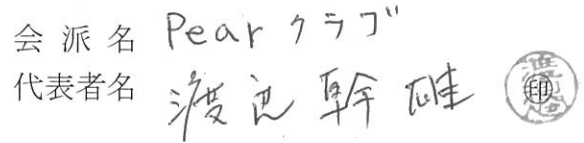 会派名 Pearクラブ
代表者名 渡辺幹雄 印